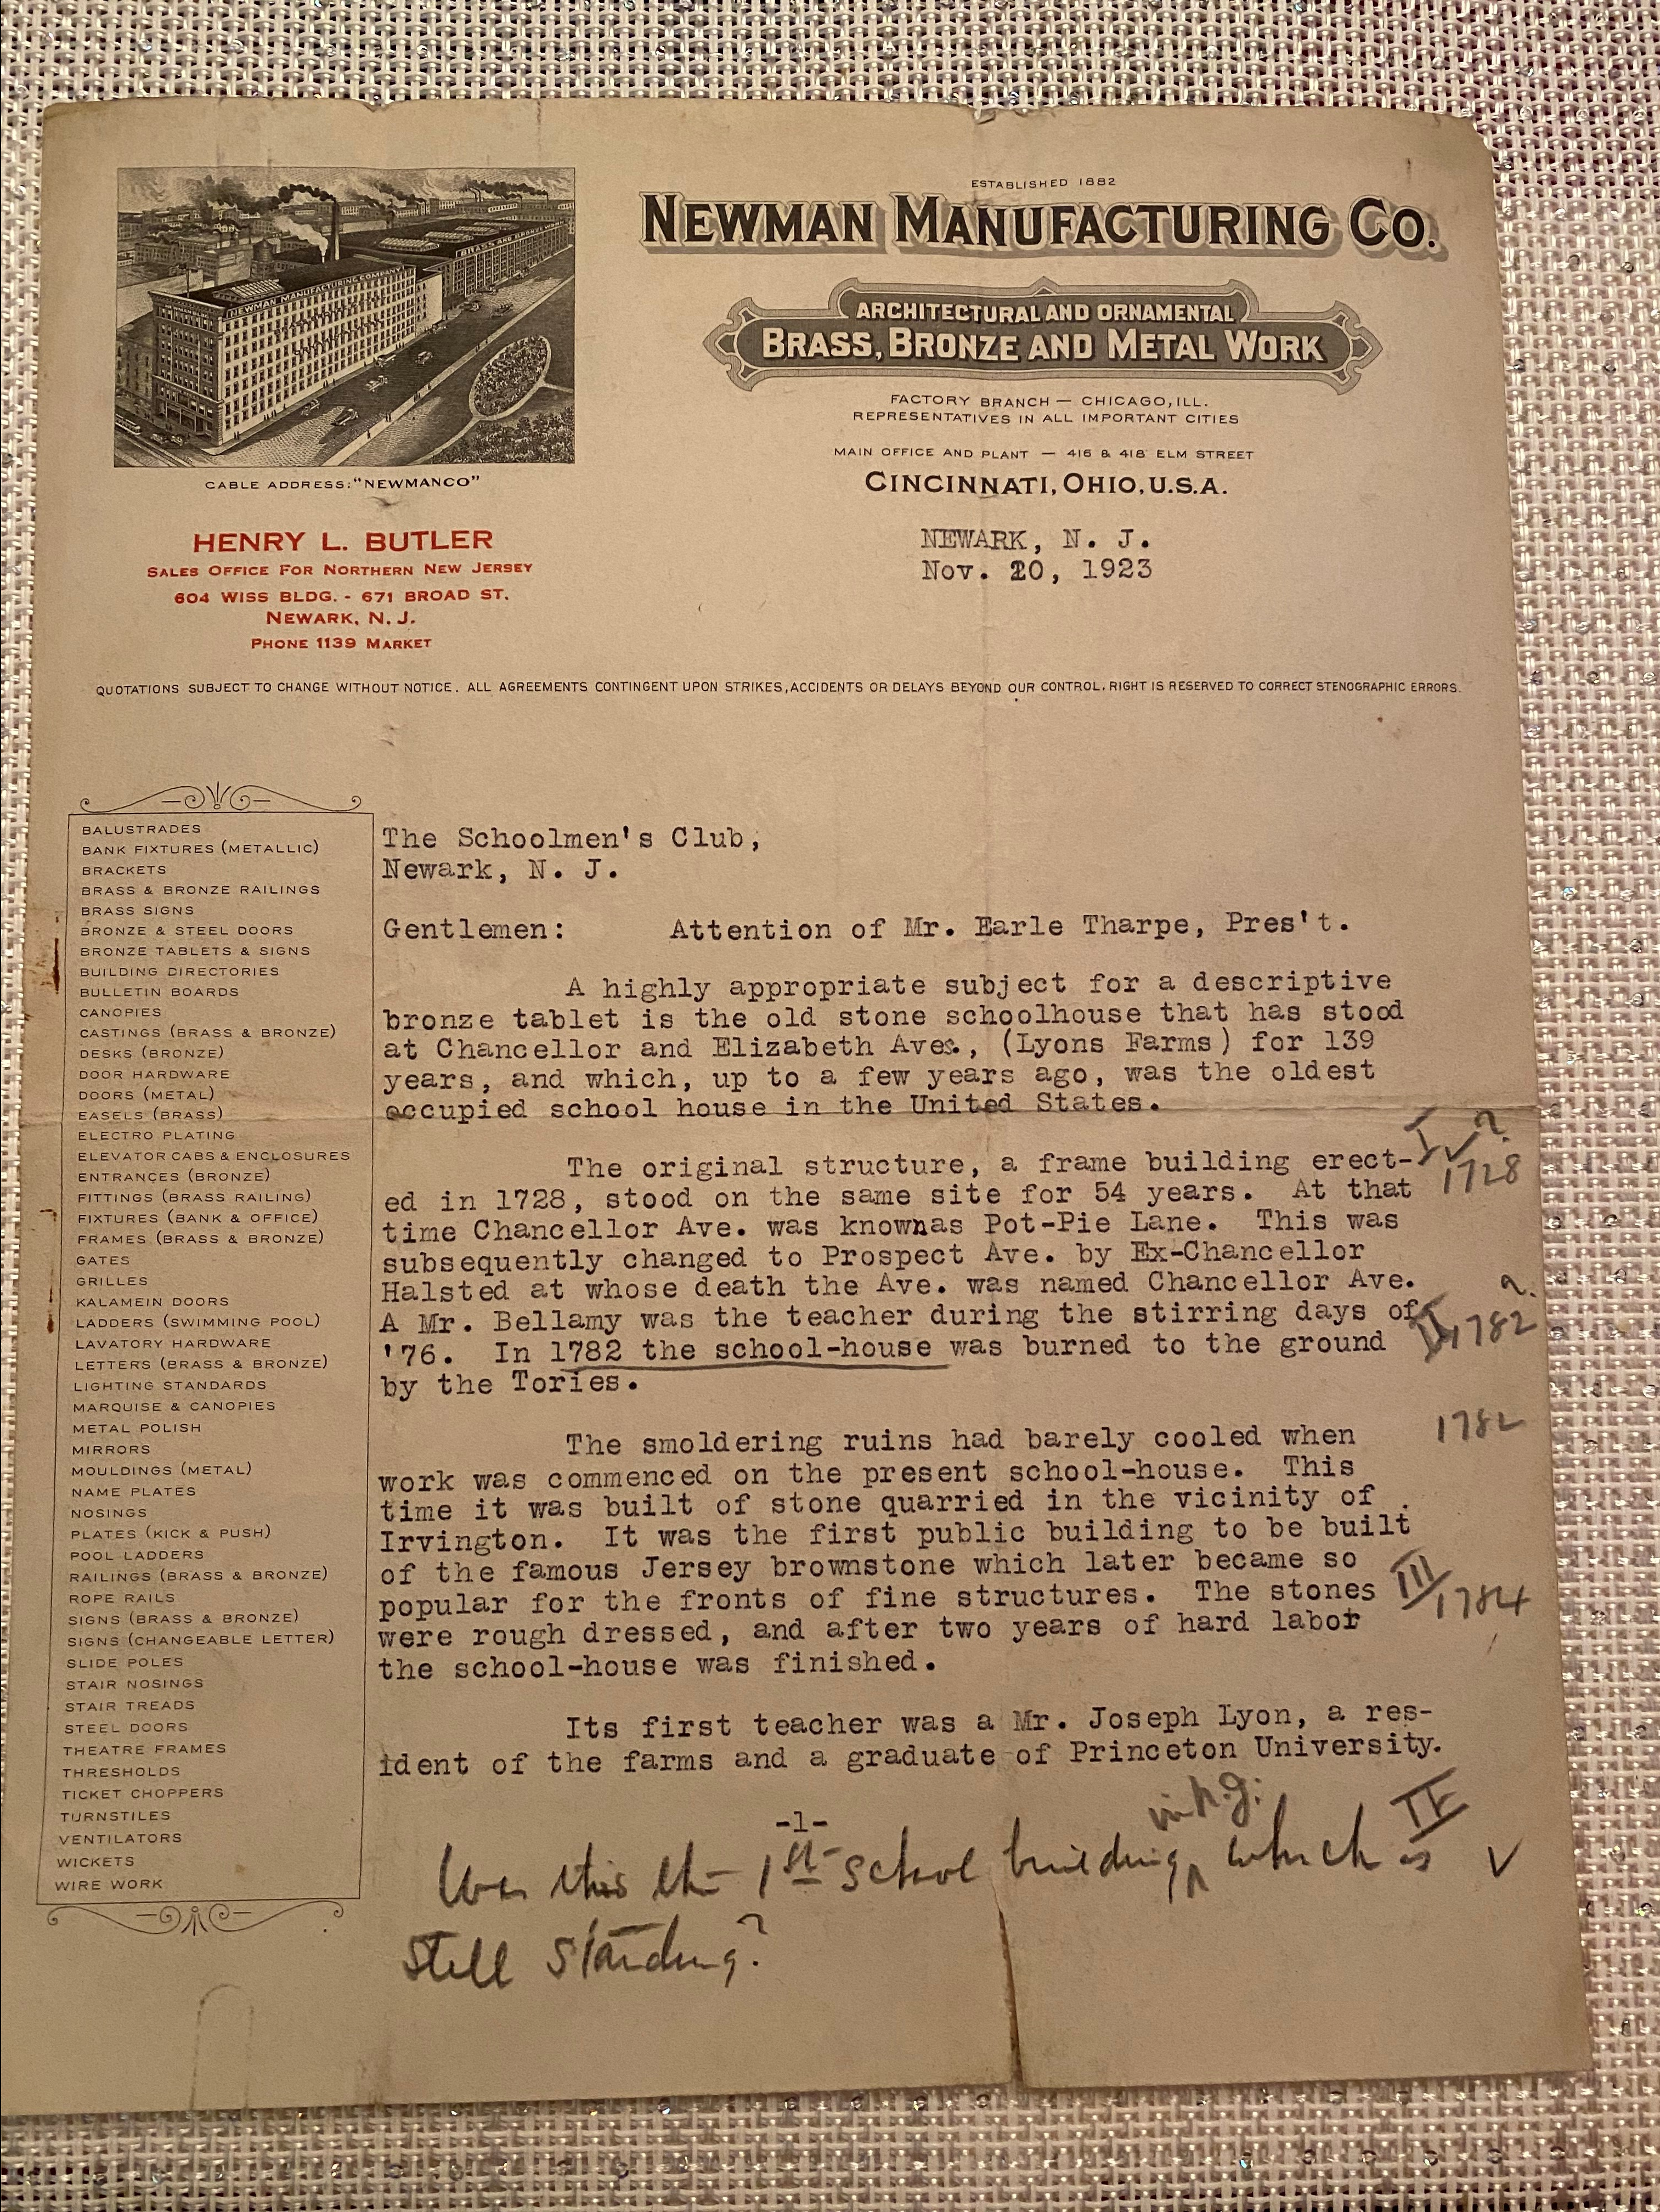 ESTABLISHED 1882
NEWMAN MANUFACTURING CO.
ARCHITECTURAL AND ORNAMENTAL
BRASS, BRONZE AND METAL WORK
FACTORY BRANCH — CHICAGO, ILL.
REPRESENTATIVES IN ALL IMPORTANT CITIES
MAIN OFFICE AND PLANT — 416 & 418 ELM STREET
CINCINNATI, OHIO, U.S.A.
NEWMAN MANUFACTURING COMPANY
BRASS AND BRONZE
CABLE ADDRESS: "NEWMANCO"
HENRY L. BUTLER
SALES OFFICE FOR NORTHERN NEW JERSEY
604 WISS BLDG. - 671 BROAD ST.
NEWARK, N. J.
PHONE 1139 MARKET
NEWARK, N. J.
Nov. 20, 1923
QUOTATIONS SUBJECT TO CHANGE WITHOUT NOTICE. ALL AGREEMENTS CONTINGENT UPON STRIKES, ACCIDENTS OR DELAYS BEYOND OUR CONTROL. RIGHT IS RESERVED TO CORRECT STENOGRAPHIC ERRORS.
BALUSTRADES
BANK FIXTURES (METALLIC)
BRACKETS
BRASS & BRONZE RAILINGS
BRASS SIGNS
BRONZE & STEEL DOORS
BRONZE TABLETS & SIGNS
BUILDING DIRECTORIES
BULLETIN BOARDS
CANOPIES
CASTINGS (BRASS & BRONZE)
DESKS (BRONZE)
DOOR HARDWARE
DOORS (METAL)
EASELS (BRASS)
ELECTRO PLATING
ELEVATOR CABS & ENCLOSURES
ENTRANCES (BRONZE)
FITTINGS (BRASS RAILING)
FIXTURES (BANK & OFFICE)
FRAMES (BRASS & BRONZE)
GATES
GRILLES
KALAMEIN DOORS
LADDERS (SWIMMING POOL)
LAVATORY HARDWARE
LETTERS (BRASS & BRONZE)
LIGHTING STANDARDS
MARQUISE & CANOPIES
METAL POLISH
MIRRORS
MOULDINGS (METAL)
NAME PLATES
NOSINGS
PLATES (KICK & PUSH)
POOL LADDERS
RAILINGS (BRASS & BRONZE)
ROPE RAILS
SIGNS (BRASS & BRONZE)
SIGNS (CHANGEABLE LETTER)
SLIDE POLES
STAIR NOSINGS
STAIR TREADS
STEEL DOORS
THEATRE FRAMES
THRESHOLDS
TICKET CHOPPERS
TURNSTILES
VENTILATORS
WICKETS
WIRE WORK
The Schoolmen's Club,
Newark, N. J.
Gentlemen: Attention of Mr. Earle Tharpe, Pres't.
A highly appropriate subject for a descriptive
bronze tablet is the old stone schoolhouse that has stood
at Chancellor and Elizabeth Aves., (Lyons Farms) for 139
years, and which, up to a few years ago, was the oldest
occupied school house in the United States.
The original structure, a frame building erect-
ed in 1728, stood on the same site for 54 years. At that
time Chancellor Ave. was knownas Pot-Pie Lane. This was
subsequently changed to Prospect Ave. by Ex-Chancellor
Halsted at whose death the Ave. was named Chancellor Ave.
A Mr. Bellamy was the teacher during the stirring days of
'76. In 1782 the school-house was burned to the ground
by the Tories.
The smoldering ruins had barely cooled when
work was commenced on the present school-house. This
time it was built of stone quarried in the vicinity of
Irvington. It was the first public building to be built
of the famous Jersey brownstone which later became so
popular for the fronts of fine structures. The stones
were rough dressed, and after two years of hard labor
the school-house was finished.
Its first teacher was a Mr. Joseph Lyon, a res-
ident of the farms and a graduate of Princeton University.
-1-
I ✓ ?
1728
?
II 1782
1782
III
1784
IV
✓
in N.J.
Was this the 1st school building which is
still standing?